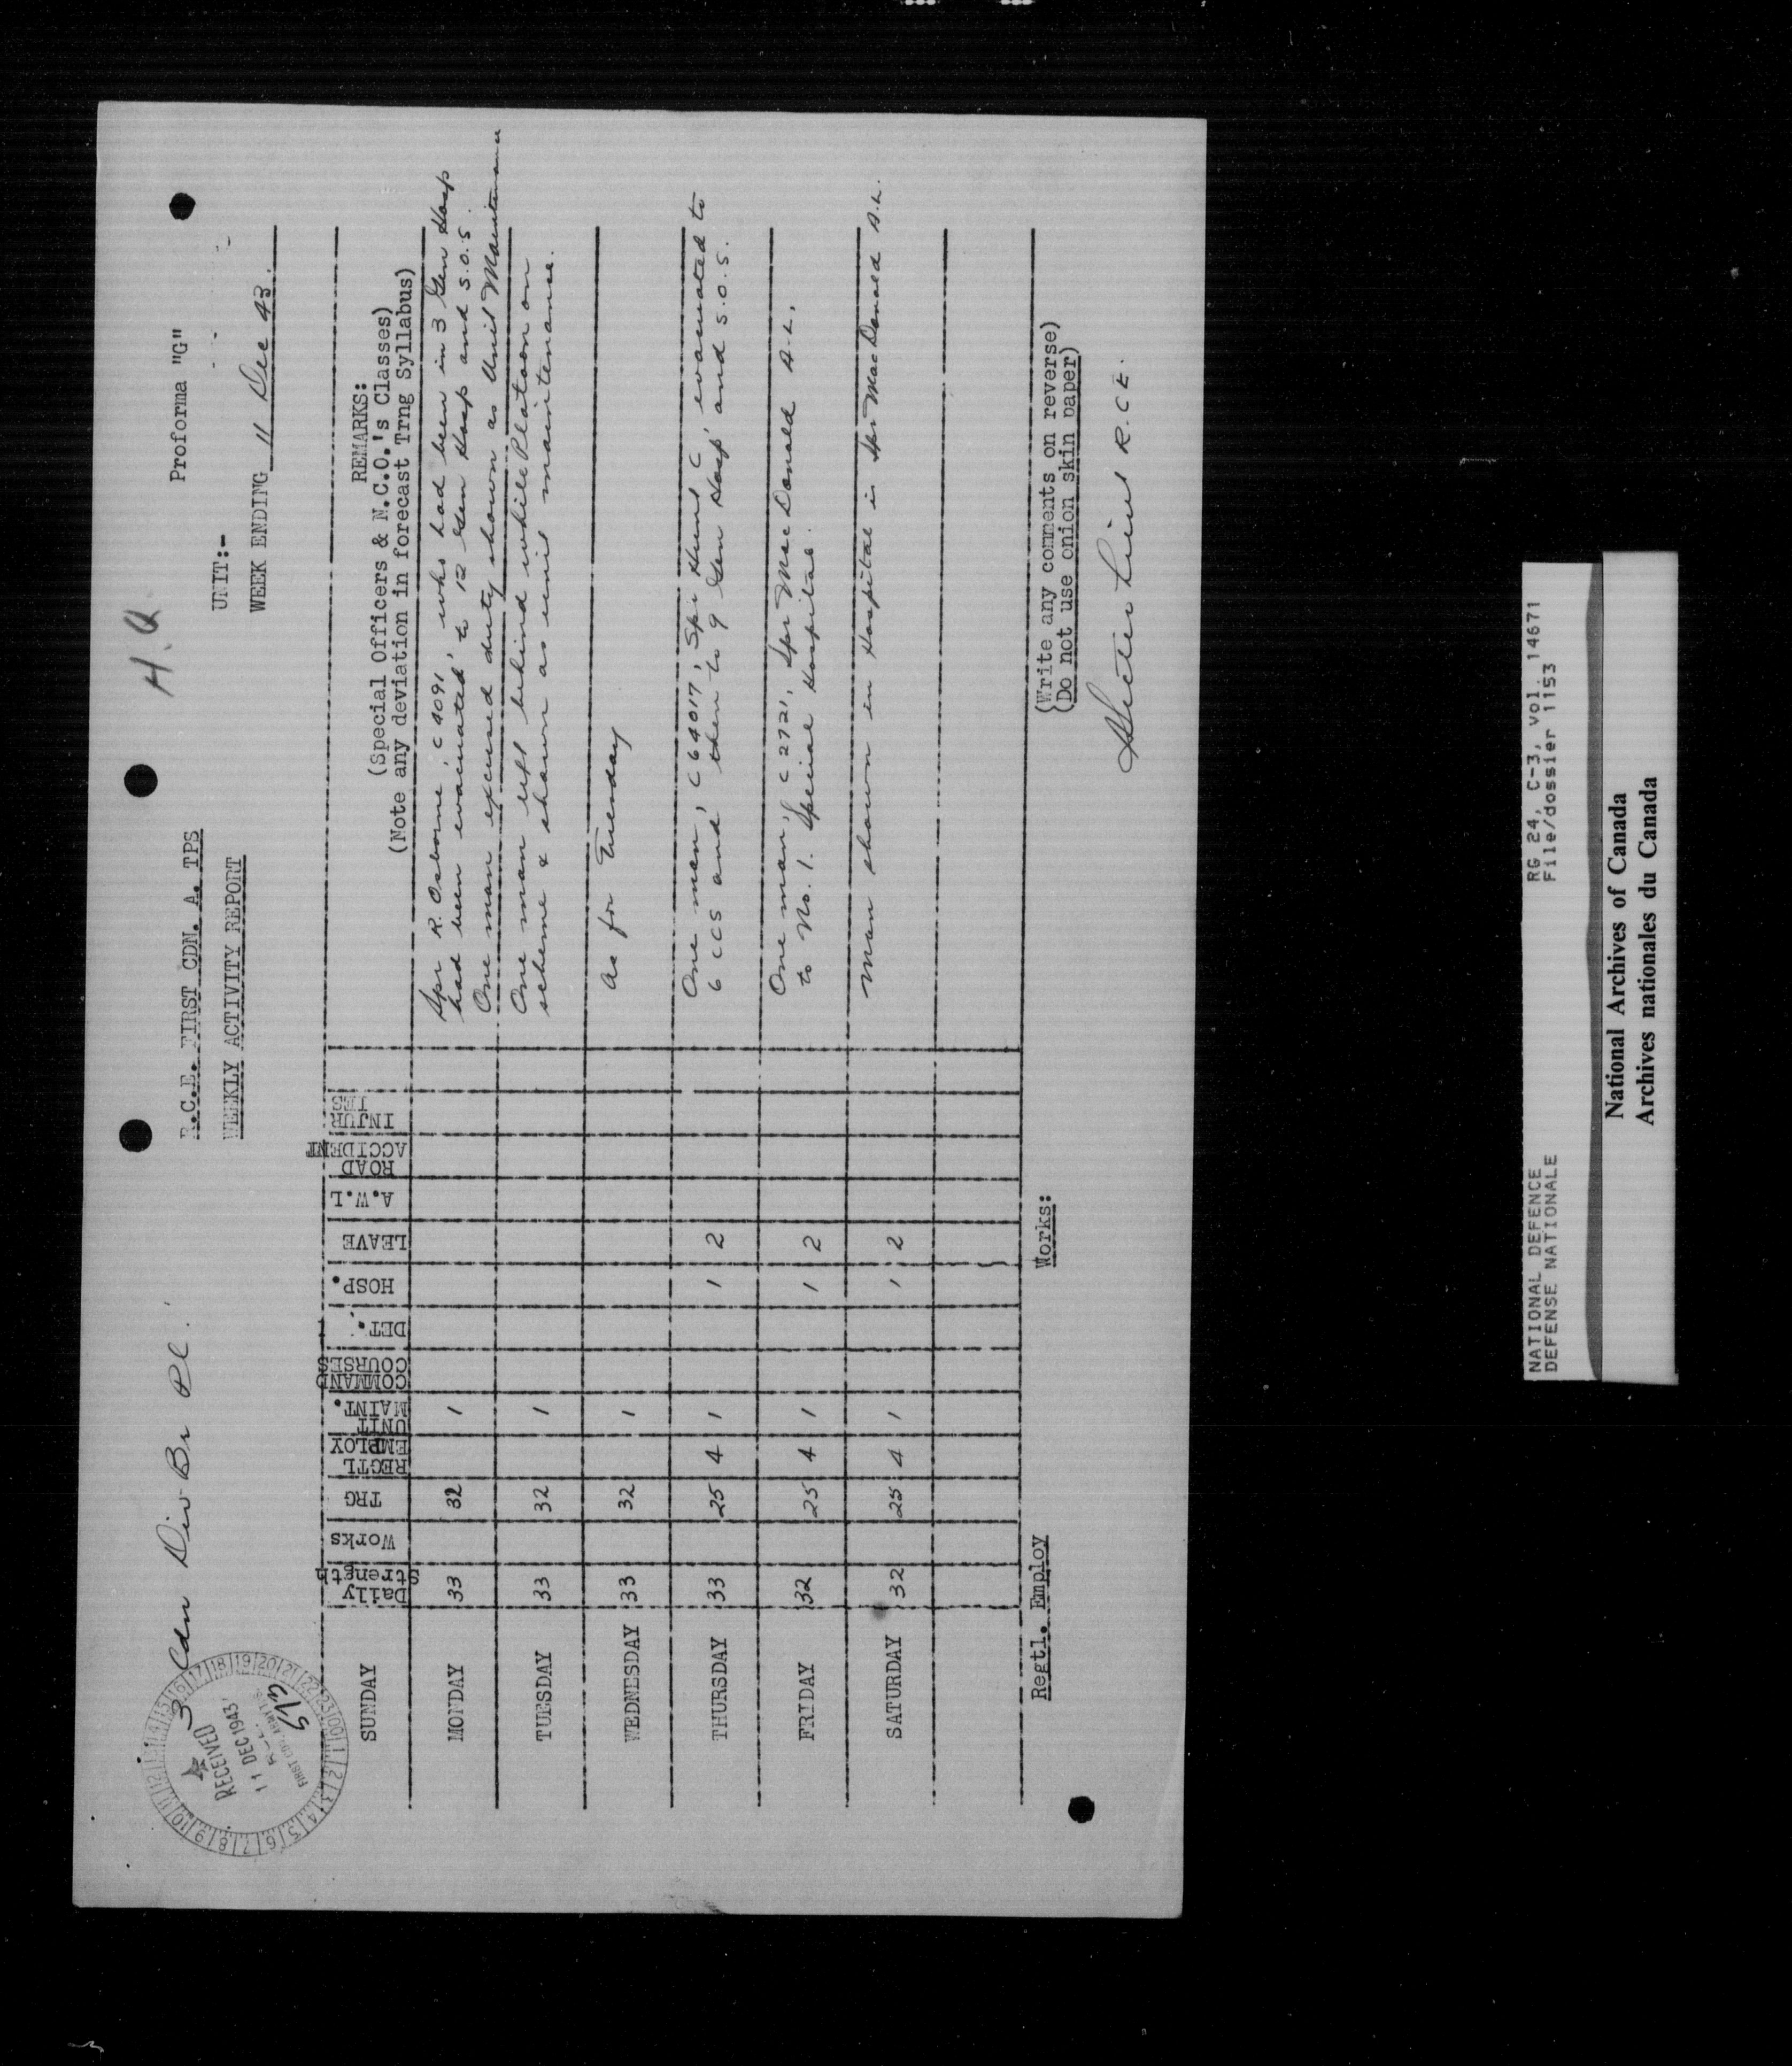 3 Cdn Div Br Pl.
H.Q.
Proforma "G"
R.C.E. FIRST CDN. A. TPS
UNIT:-
WEEKLY ACTIVITY REPORT
WEEK ENDING 11 Dec 43.
RECEIVED
11 DEC 1943
FIRST CDN. ARMY T
Daily Strength | Works | TRG | REGTL EMPLOY | UNIT MAINT. | COMMAND COURSES | DET. | HOSP. | LEAVE | A.W.L | ROAD ACCIDENT | INJURIES
REMARKS:
(Special Officers & N.C.O.'s Classes)
(Note any deviation in forecast Trng Syllabus)
SUNDAY
Spr R. Osborne, C 4091, who had been in 3 Gen Hosp
had been evacuated to 12 Gen Hosp and S.O.S.
MONDAY 33 32 1
One man excused duty shown as Unit Maintenance
TUESDAY 33 32 1
One man left behind while Platoon on
scheme & shown as unit maintenance.
WEDNESDAY 33 32 1
As for Tuesday
THURSDAY 33 25 4 1 1 2
One man, C 64017, Spr Hunt C evacuated to
6 CCS and then to 9 Gen Hosp and S.O.S.
FRIDAY 32 25 4 1 1 2
One man, C 2721, Spr MacDonald A.L.
to No. 1. Special Hospital.
SATURDAY 32 25 4 1 1 2
Man shown in Hospital is Spr MacDonald A.L.
Regtl. Employ
Works:
(Write any comments on reverse)
(Do not use onion skin paper)
Lieut R.C.E.
NATIONAL DEFENCE RG 24, C-3, vol. 14671
DEFENSE NATIONALE File/dossier 1153
National Archives of Canada
Archives nationales du Canada